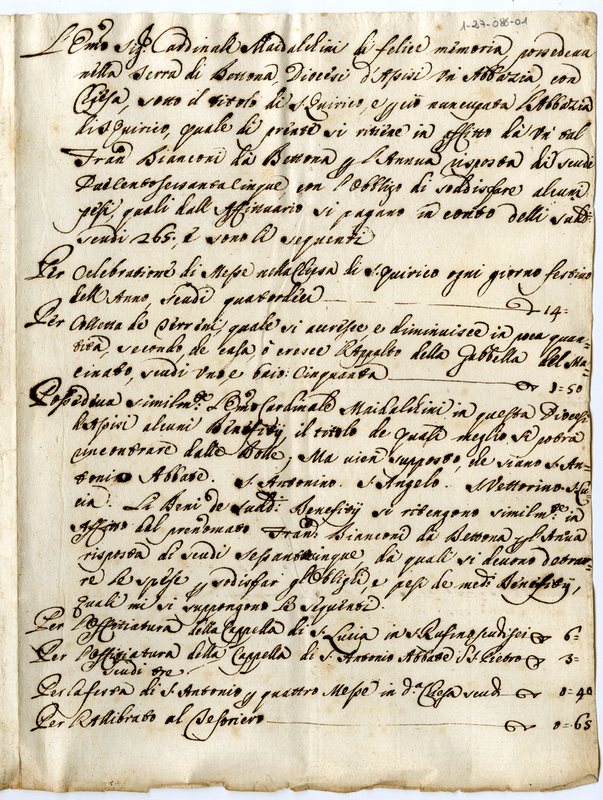 1-27-086-01
L'Emo Sigr Cardinale Maidalchini di felice memoria possedeva
nella Terra di Bettona, Diocesi d'Assisi un Abbazia con
Chiesa, sotto il titolo di S. Quirico, e nuncupata l'Abbazia
di S. Quirico, quale di pnte si ritiene in affitto da un tal
Franco Bianconi da Bettona p l'Annua risposta di scudi
Duecentosessantacinque, con l'obbligo di soddisfare alcuni
pesi, quali dall'Affittuario si pagano in conto delli sudd:
scudi 265. e sono li seguenti
Per Celebratione di Messe nella Chiesa di S. Quirico ogni giorno festivo
dell'Anno, scudi quatordici 14=
Per Colletta de quale si accresce e diminuisce in poca quan-
tità, secondo che cala ò cresce l'Appalto della Gabella del Ma-
cinato, scudi uno e baio: Cinquanta 1=50
Possedeva similmte l'Emo Cardinale Maidalchini in questa Diocesi
d'Assisi alcuni Benefitij, il titolo de quali meglio si potrà
incontrare dalle Bolle; Ma vien supposto, che siano S. An-
tonio Abbate. S. Antonino. S. Angelo. S. Vettorino. S. Lu-
cia. Li Beni de sudd: Benefitij si ritengono similmte in
Affitto dal prenomato Franco Bianconi da Bettona p l'Annua
risposta di scudi sessantacinque da quali si devono detrar-
re le spese p sodisfar gl'Oblighi e pesi de medi Benefitij,
quali mi si suppongono li seguenti.
Per l'Offitiatura della Cappella di S. Lucia in S. Rufino scudi sei 6=
Per l'Offitiatura della Cappella di S. Antonio Abbate S. Pietro 3=
scudi tre
Per la festa di S. Antonio p quattro Messe in da Chiesa scudi 0=40
Per l'Allibrato al 0=65